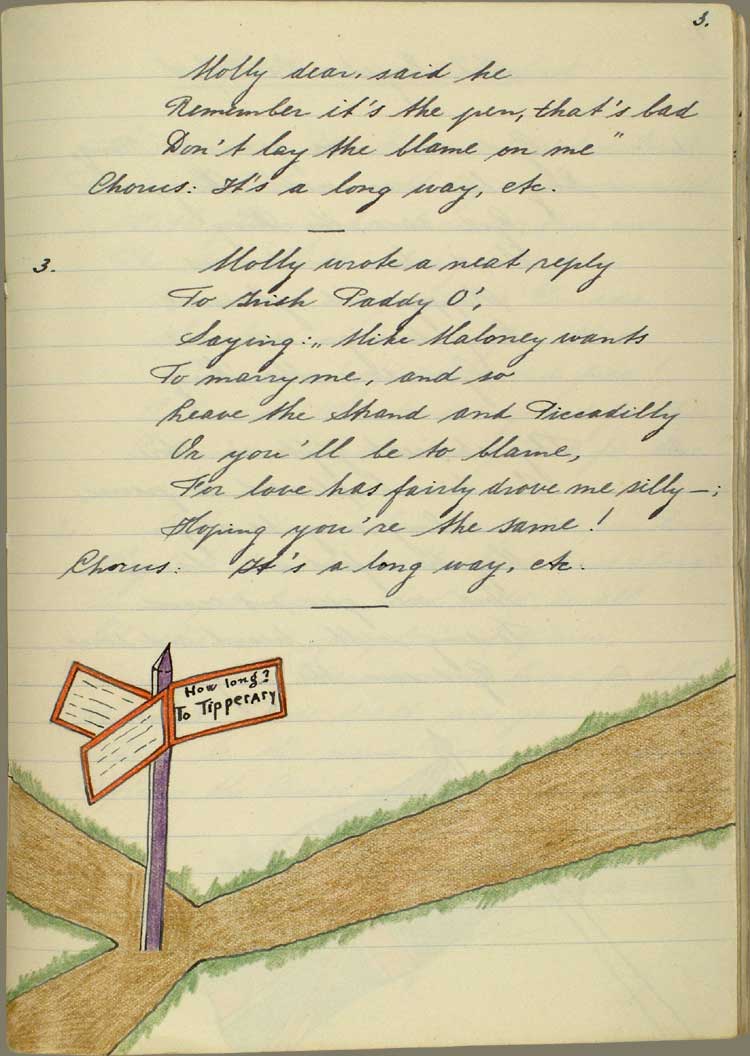 3.
Molly dear, said he
Remember it's the pen, that's bad
Don't lay the blame on me"
Chorus: It's a long way, etc.
3. Molly wrote a neat reply
To Irish Paddy O',
Saying: „Mike Maloney wants
To marry me, and so
Leave the Strand and Piccadilly
Or you'll be to blame,
For love has fairly drove me silly—;
Hoping you're the same!
Chorus: It's a long way, etc.
How long?
To Tipperary